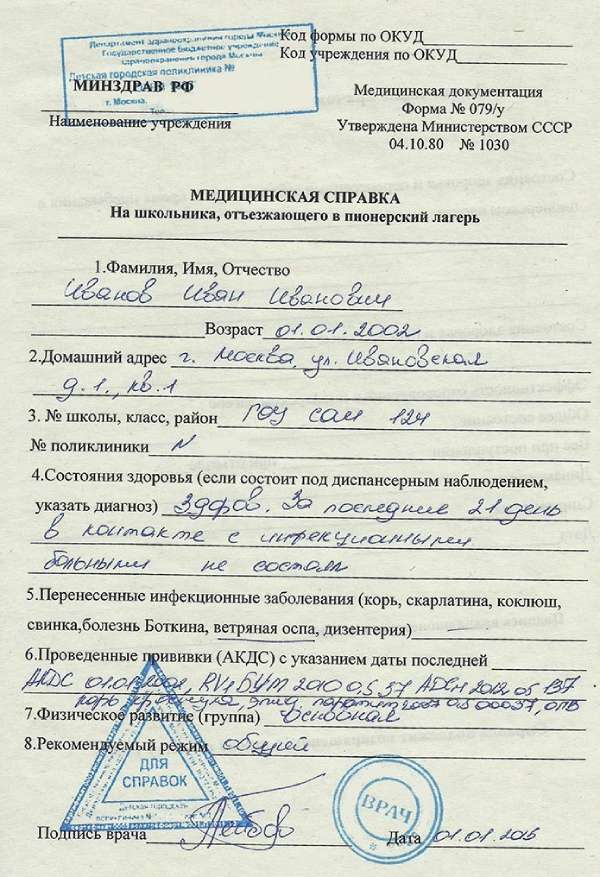 Департамент здравоохранения города Москвы
Государственное бюджетное учреждение
здравоохранения города Москвы
Детская городская поликлиника №
МИНЗДРАВ РФ
г. Москва,
Наименование учреждения
Код формы по ОКУД
Код учреждения по ОКУД
Медицинская документация
Форма № 079/у
Утверждена Министерством СССР
04.10.80 № 1030
МЕДИЦИНСКАЯ СПРАВКА
На школьника, отъезжающего в пионерский лагерь
1.Фамилия, Имя, Отчество
Иванов Иван Иванович
Возраст 01.01.2002
2.Домашний адрес г. Москва, ул. Ивановская
д.1., кв.1
3. № школы, класс, район ГОУ сош 124
№ поликлиники N
4.Состояния здоровья (если состоит под диспансерным наблюдением,
указать диагноз) Здоров. За последние 21 день
в контакте с инфекционными
больными не состоял
5.Перенесенные инфекционные заболевания (корь, скарлатина, коклюш,
свинка,болезнь Боткина, ветряная оспа, дизентерия) —
6.Проведенные прививки (АКДС) с указанием даты последней
АКДС
корь краснуха, эпид. паротит
7.Физическое развитие (группа) Основная
8.Рекомендуемый режим общий
ДЛЯ
СПРАВОК
ВРАЧ
Подпись врача
Дата 01.01.2015